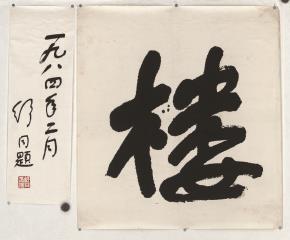 楼
一九八四年二月
舒同题